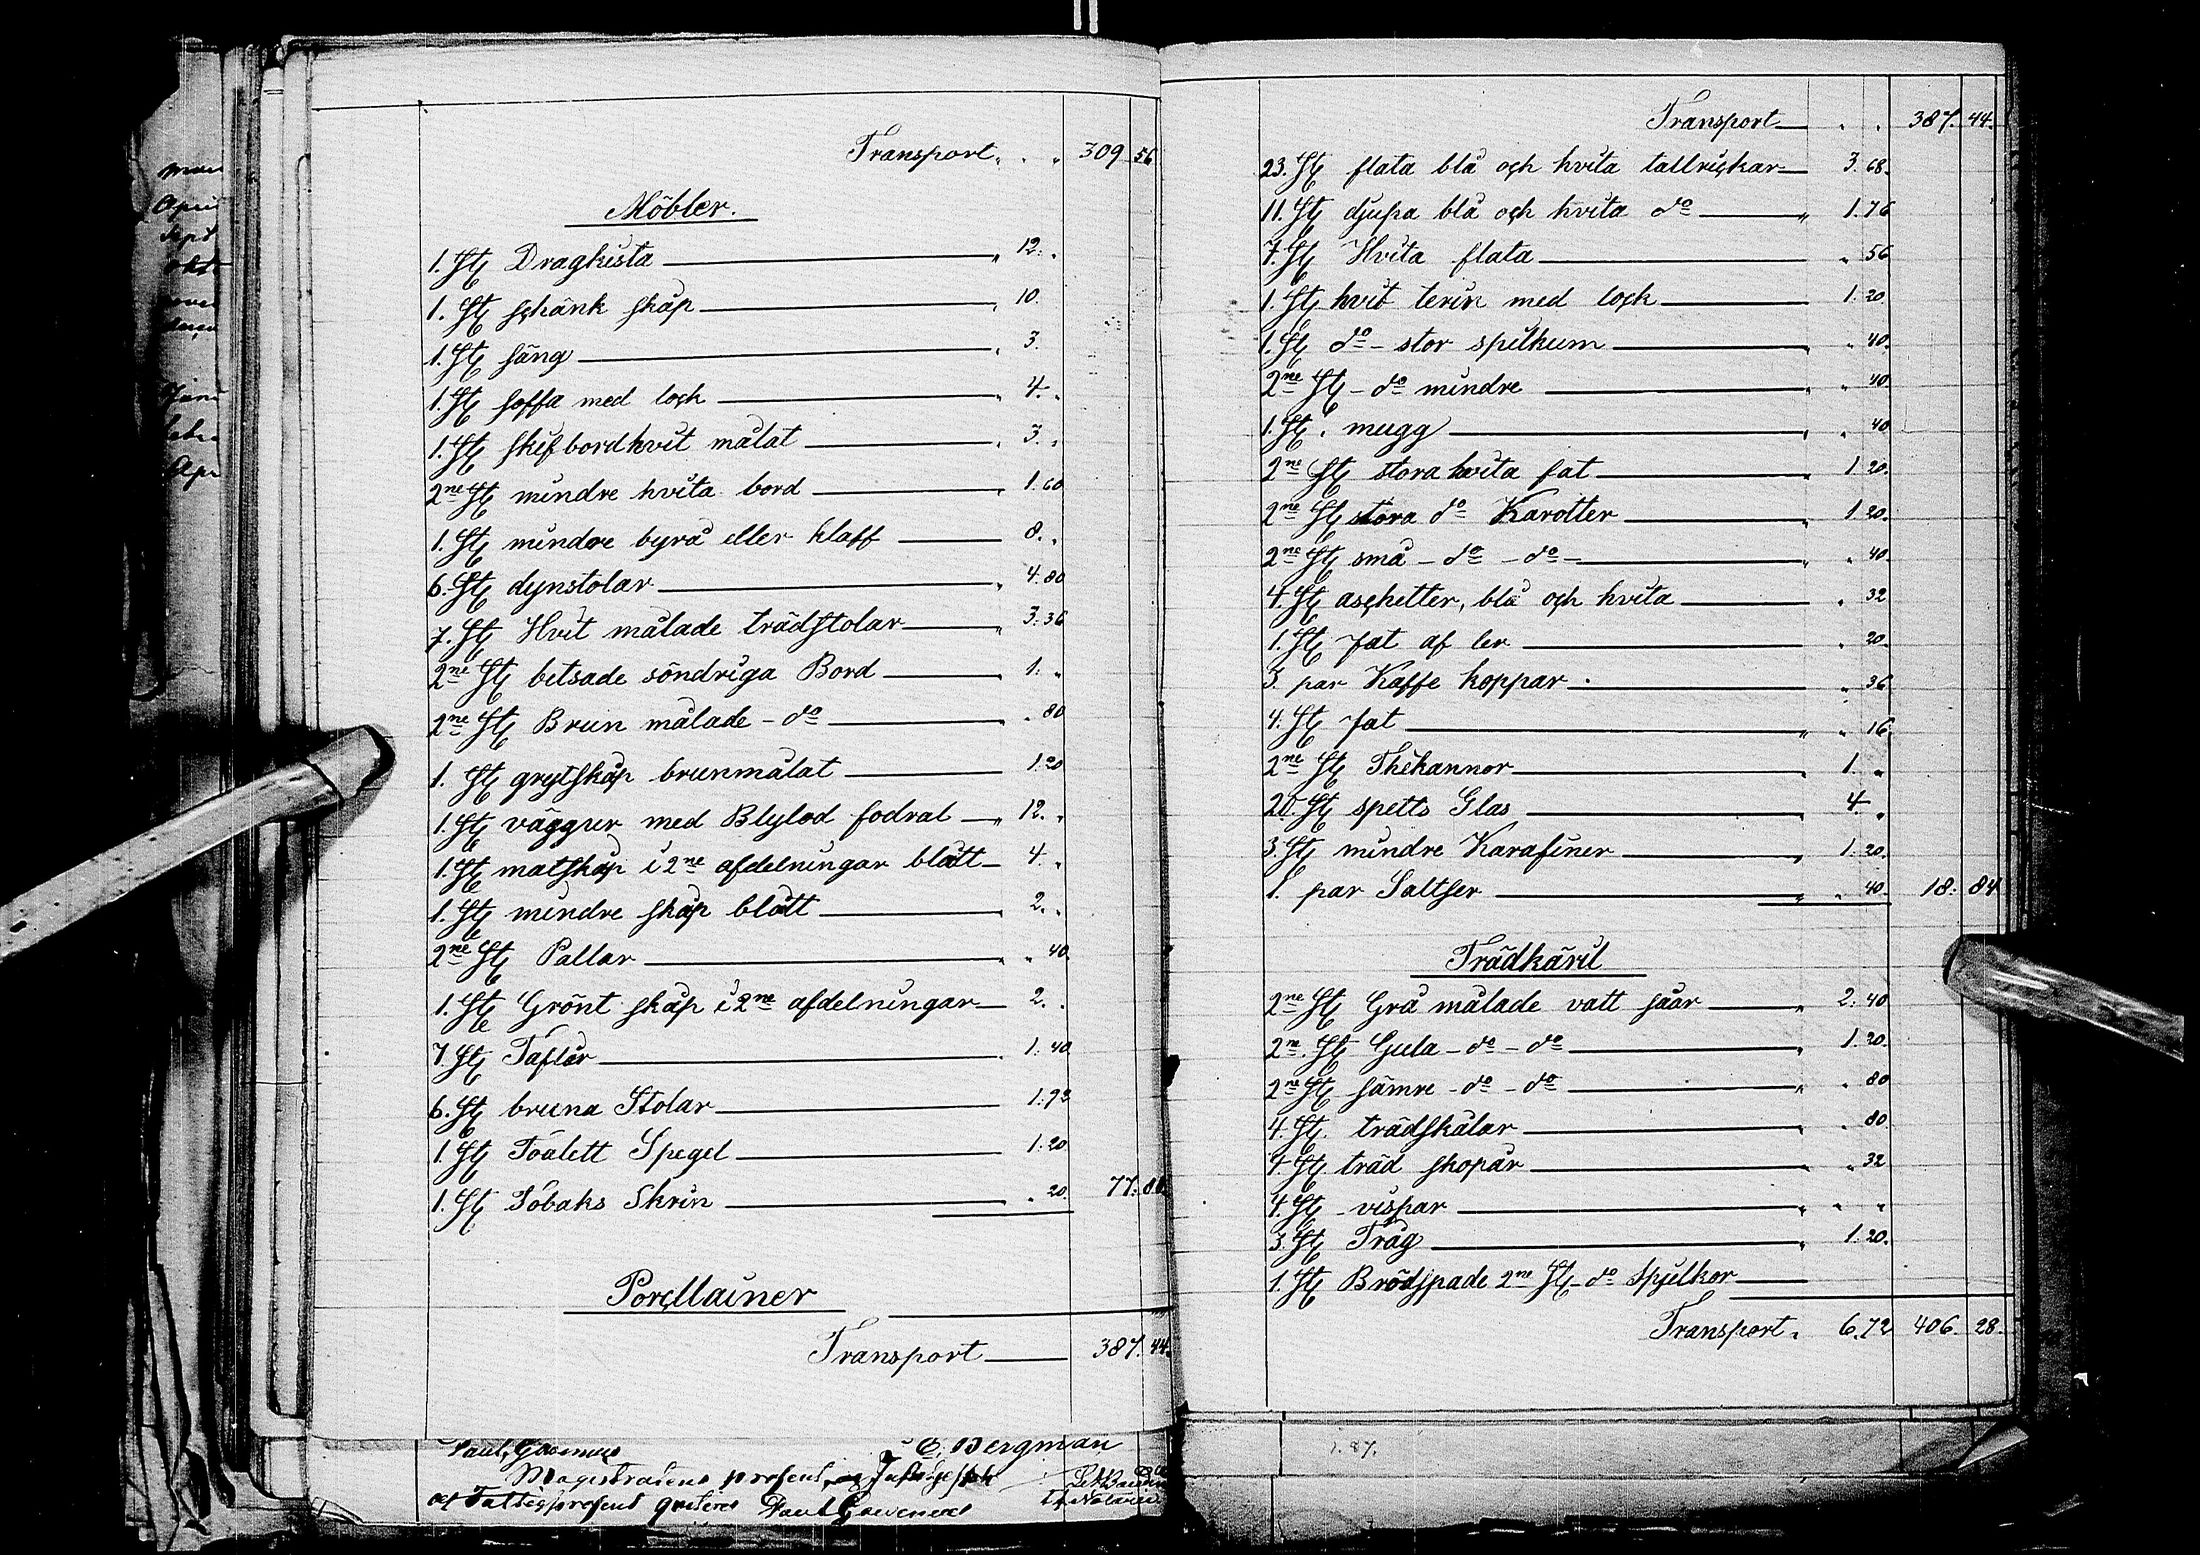 Transport „ „ 309 56
Möbler.
1. St Dragkista „ 12. „
1. St schänk skåp „ 10.
1. St säng „ 3.
1. St soffa med lock „ 4. „
1. St skifbord hvit målat „ 3. „
2ne St mindre hvita bord „ 1.60
1. St mindre byrå eller klaff 8. „
6. St dynstolar „ 4.80
7. St Hvit målade trädstolar „ 3.36
2ne St betsade söndriga Bord „ 1. „
2ne St Brun målade – do „ 80
1. St grytskåp brunmålat 1.20
1. St väggur med Blylod fodral „ 12. „
1. St matskåp i 2ne afdelningar blått 4. „
1. St mindre skåp blått „ 2. „
2ne St Pallar „ „ 40.
1. St Grönt skåp i 2ne afdelningar 2. „
7. St Taflår „ 1.40
6. St bruna Stolar 1.92
1. St Toalett Spegel 1.20
1. St Tobaks Skrin „ 20. 77. 88
Porcllainer
Transport 387. 44.
Magistratens
C. Bergman
Transport „ „ 387. 44.
23. St flata blå och hvita tallrickar 3.68.
11. St djupa blå och hvita do „ 1.76
7. St Hvita flata „ 56
1. St hvit terin med lock 1.20
1. St do – stor spilkum „ „ 40.
2ne St – do mindre „ „ 40
1. St. mugg „ „ 40
2ne St stora hvita fat „ 1.20.
2ne St stora do Karotter „ 1.20.
2ne St små – do – do – „ „ 40.
4. St aschetter, blå och hvita „ 32
1. St fat af ler „ 20.
3. par Kaffe koppar. „ 36
4. St fat „ „ 16.
2ne St Thekannor „ 1. „
20. St spetts Glas „ 4. „
3. St mindre Karafiner „ 1.20.
1. par Saltser „ „ 40. 18. 84
Trädkäril
2ne St Grå målade vatt såar „ 2.40
2ne St Gula – do – do „ 1.20.
2ne St sämre – do – do „ „ 80
4. St. trädskålar „ „ 80
4. St träd skopår „ „ 32
4. St – vispar „ „ „
3. St Tråg „ 1.20.
1. St Brödspade 2ne St – do Spjelkor
Transport „ 6.72 406. 28.